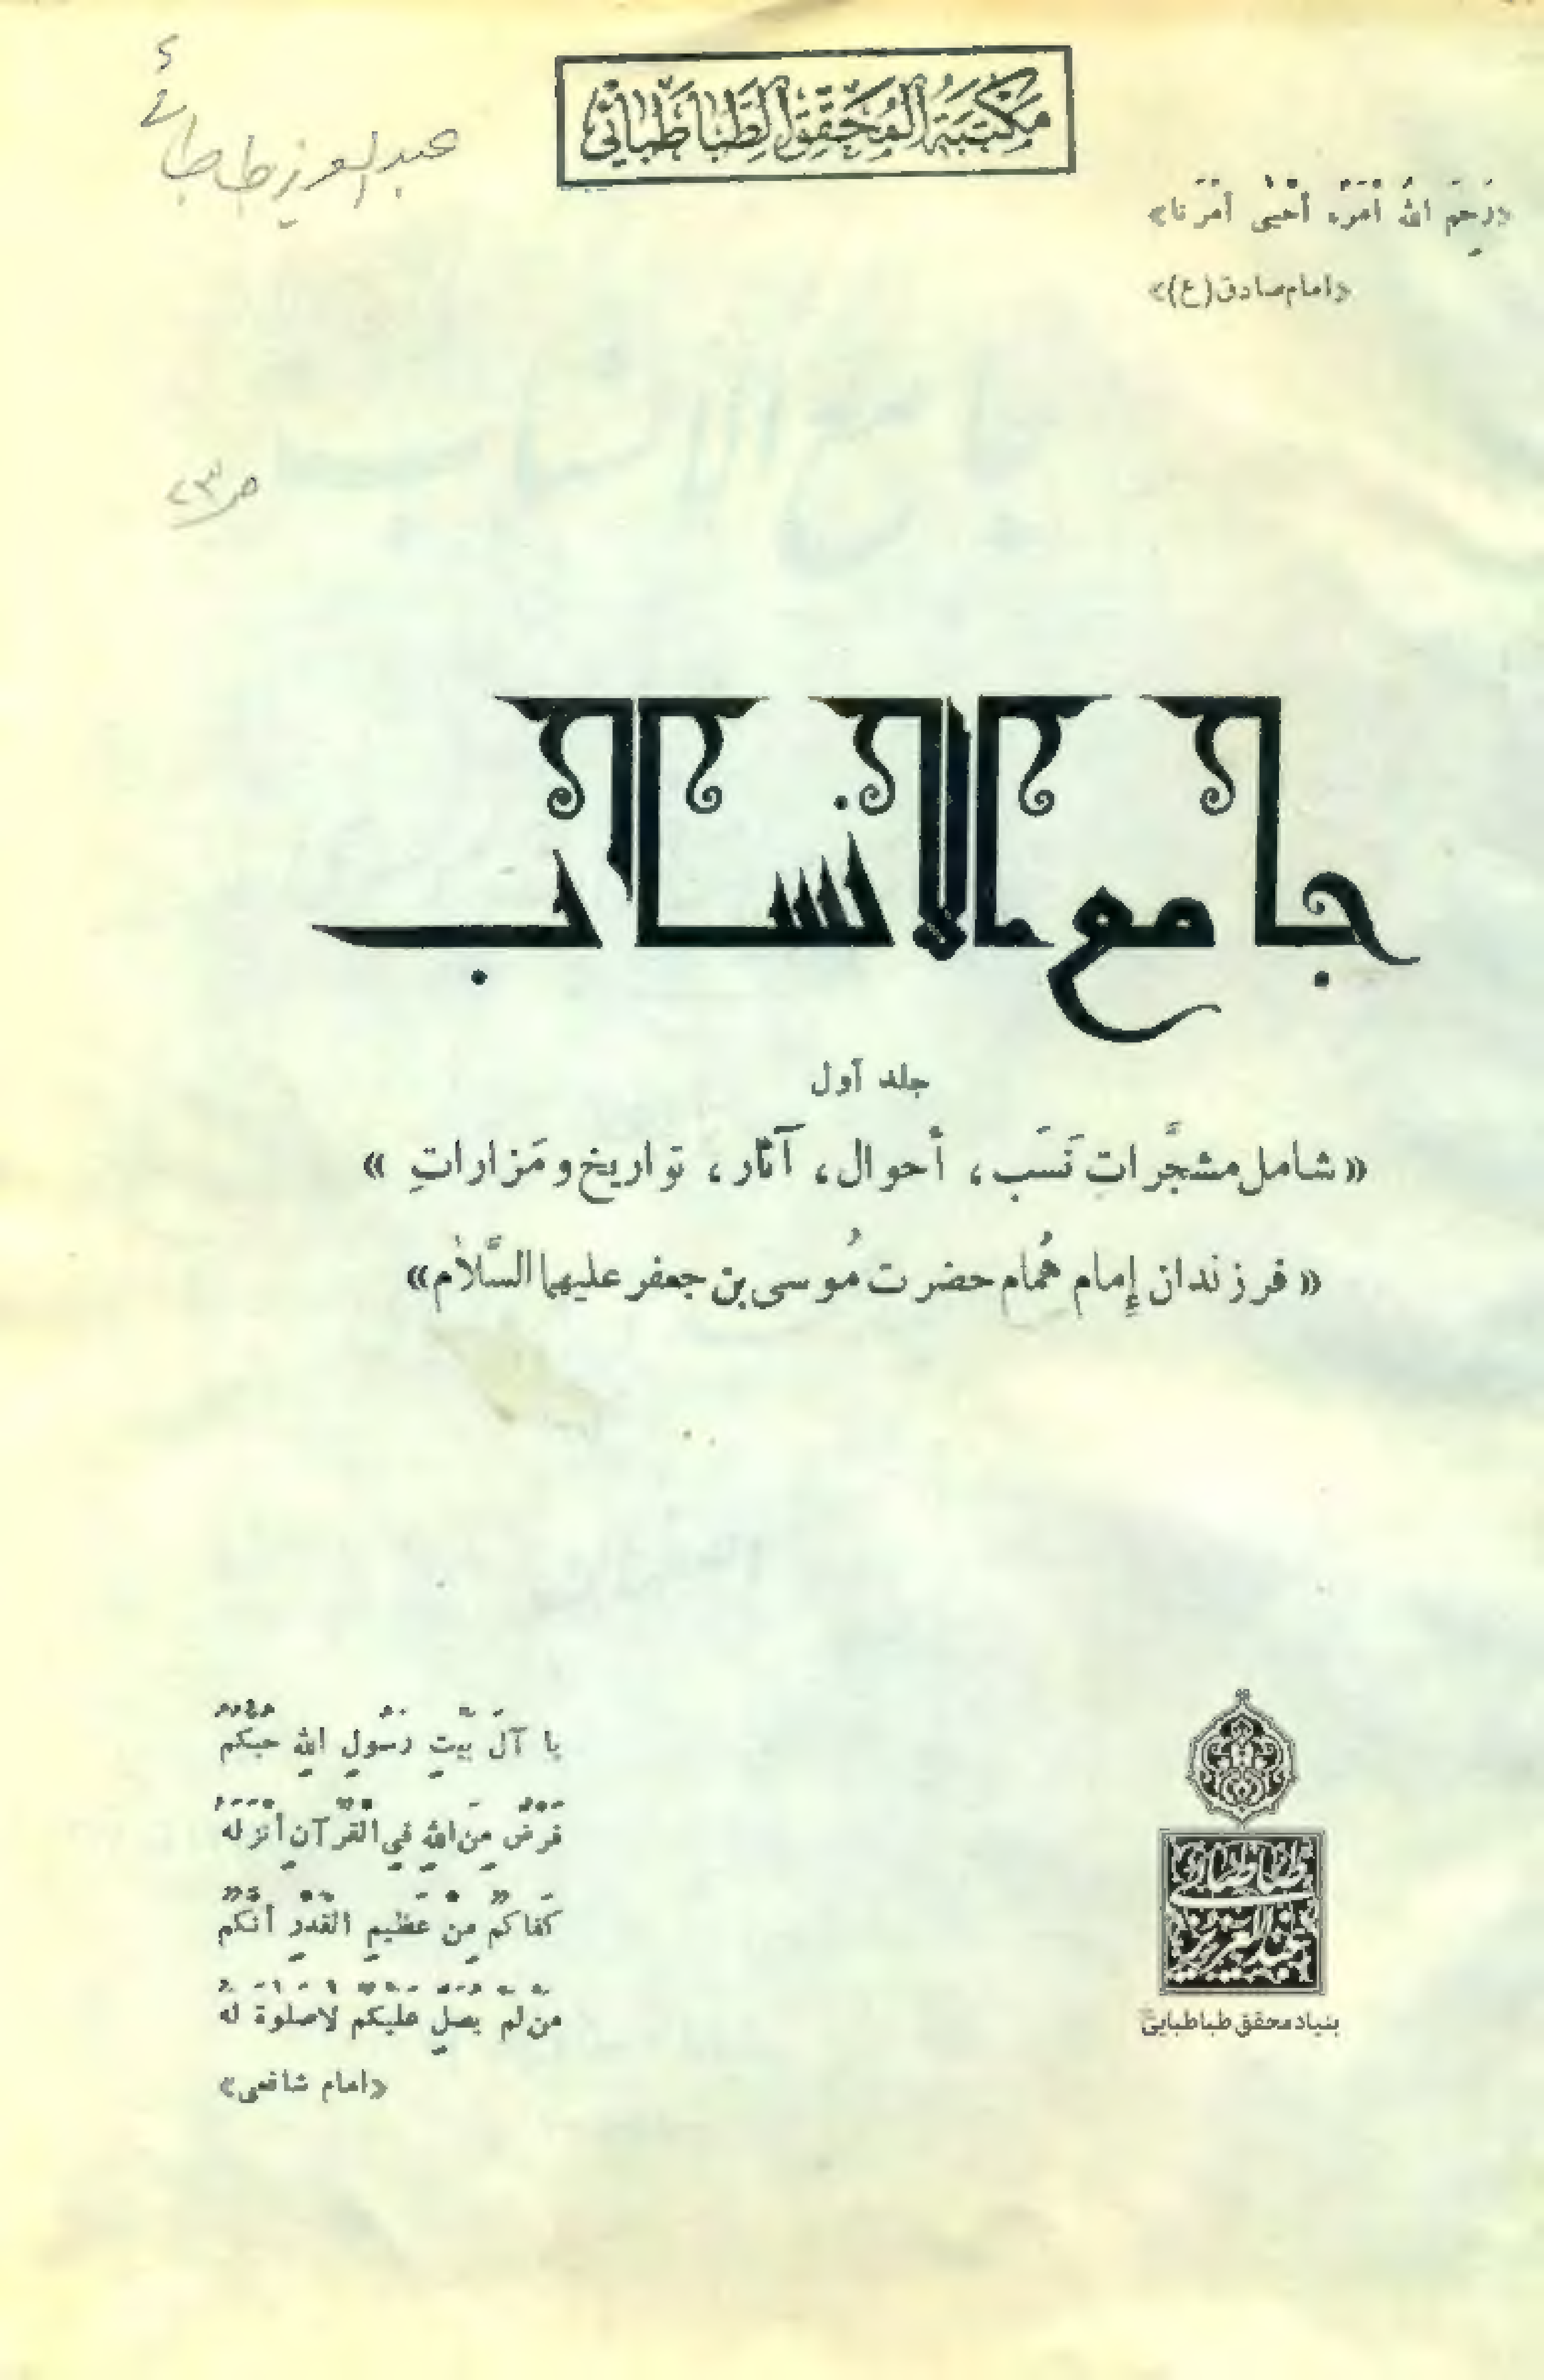 مَكتَبَةُ المُحَقِّقِ الطَّباطَبائي
عبدالعزيز طباطبائي
«رَحِمَ اللهُ امْرَءً أحْيى أمْرَنا»
«امام صادق(ع)»
جامع الانساب
جلد أول
«شامل مشجَّرات نَسَب، أحوال، آثار، تواريخ و مَزاراتِ»
«فرزندان إمام هُمام حضرت مُوسى بن جعفر عليهما السَّلام»
يا آلَ بَيْتِ رَسُولِ اللهِ حُبُّكُمُ
فَرْضٌ مِنَ اللهِ فِي الْقُرْآنِ أَنْزَلَهُ
كَفاكُمْ مِنْ عَظيمِ الْقَدْرِ أَنَّكُمْ
مَنْ لَمْ يُصَلِّ عَلَيْكُمْ لاصَلوةَ لَهُ
«امام شافعى»
طباطبائى
عبدالعزيز
بنياد محقق طباطبايى